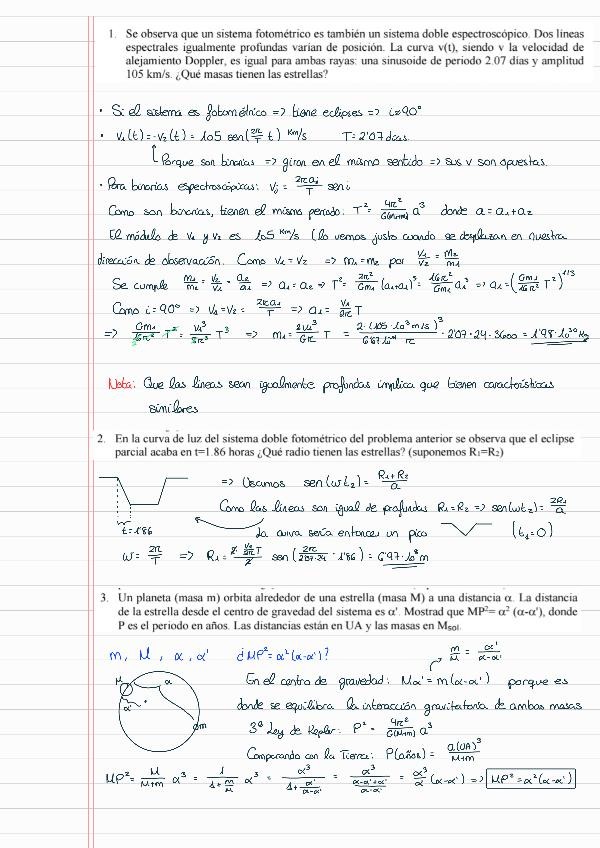 1. Se observa que un sistema fotométrico es también un sistema doble espectroscópico. Dos líneas
espectrales igualmente profundas varían de posición. La curva v(t), siendo v la velocidad de
alejamiento Doppler, es igual para ambas rayas: una sinusoide de periodo 2.07 días y amplitud
105 km/s. ¿Qué masas tienen las estrellas?
· Si el sistema es fotométrico => tiene eclipses => i≈90°
· V₁(t)=-V₂(t) = 105 sen(2π/T t) km/s T=2'07 días.
Porque son binarias => giran en el mismo sentido => sus v son opuestas.
· Para binarias espectroscópicas: Vⱼ = 2πaⱼ/T sen i
Como son binarias, tienen el mismo periodo: T² = 4π²/G(M+m) a³ donde a = a₁+a₂
El módulo de V₁ y V₂ es 105 km/s (lo vemos justo cuando se desplazan en nuestra
dirección de observación. Como V₁ = V₂ => m₁=m₂ por V₁/V₂ = m₂/m₁
Se cumple m₁/m₂ = V₂/V₁ = a₂/a₁ => a₁=a₂ => T² = 2π²/Gm₁ (a₁+a₁)³ = 16π²/Gm₁ a₁³ => a₁=(Gm₁/16π² T²)^1/3
Como i=90° => V₁=V₂= 2πa₁/T => a₁= V₁/2π T
=> Gm₁/16π² T² = V₁³/8π³ T³ => m₁= 2V₁³/Gπ T = 2·(105·10³ m/s)³/6'67·10⁻¹¹ π · 2'07·24·3600 = 1'98·10³⁰ kg
Nota: Que las líneas sean igualmente profundas implica que tienen características
similares
2. En la curva de luz del sistema doble fotométrico del problema anterior se observa que el eclipse
parcial acaba en t=1.86 horas ¿Qué radio tienen las estrellas? (suponemos R₁=R₂)
=> Usamos sen(ωt₂) = R₁+R₂/a
Como las líneas son igual de profundas R₁=R₂ => sen(ωt₂) = 2R₁/a
t=1'86 La curva sería entonces un pico (t₁=0)
ω = 2π/T => R₁ = 2·V₁/2π T/2 sen(2π/2'07·24 · 1'86) = 6'97·10⁸ m
3. Un planeta (masa m) orbita alrededor de una estrella (masa M) a una distancia α. La distancia
de la estrella desde el centro de gravedad del sistema es α'. Mostrad que MP²= α² (α-α'), donde
P es el periodo en años. Las distancias están en UA y las masas en Msol.
m, M, α, α' ¿MP²=α²(α-α')? m/M = α'/α-α'
M α α' m
En el centro de gravedad: Mα' = m(α-α') porque es
donde se equilibra la interacción gravitatoria de ambas masas
3ª Ley de Kepler: P² = 4π²/G(M+m) a³
Comparando con la Tierra: P(años) = a(UA)³/M+m
MP² = M/M+m α³ = 1/1+m/M α³ = α³/1+α'/α-α' = α³/α-α'+α'/α-α' = α³/α (α-α') => MP²=α²(α-α')